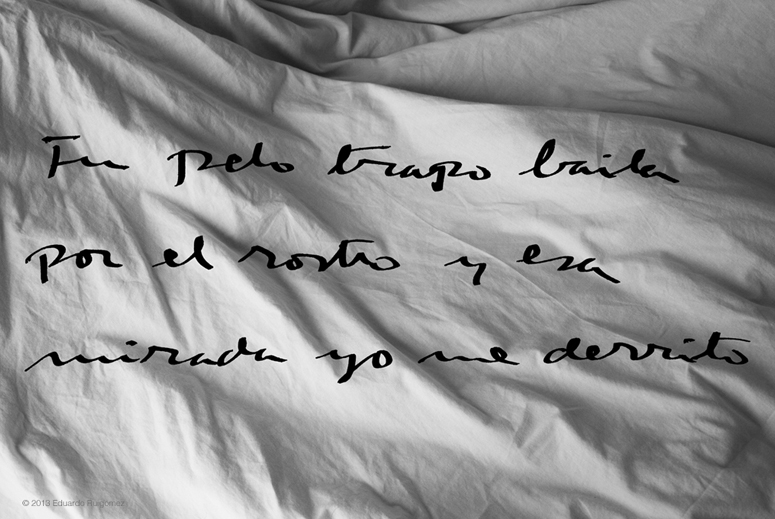 Tu pelo trapo baila
por el rostro y esa
mirada yo me derrito
© 2013 Eduardo